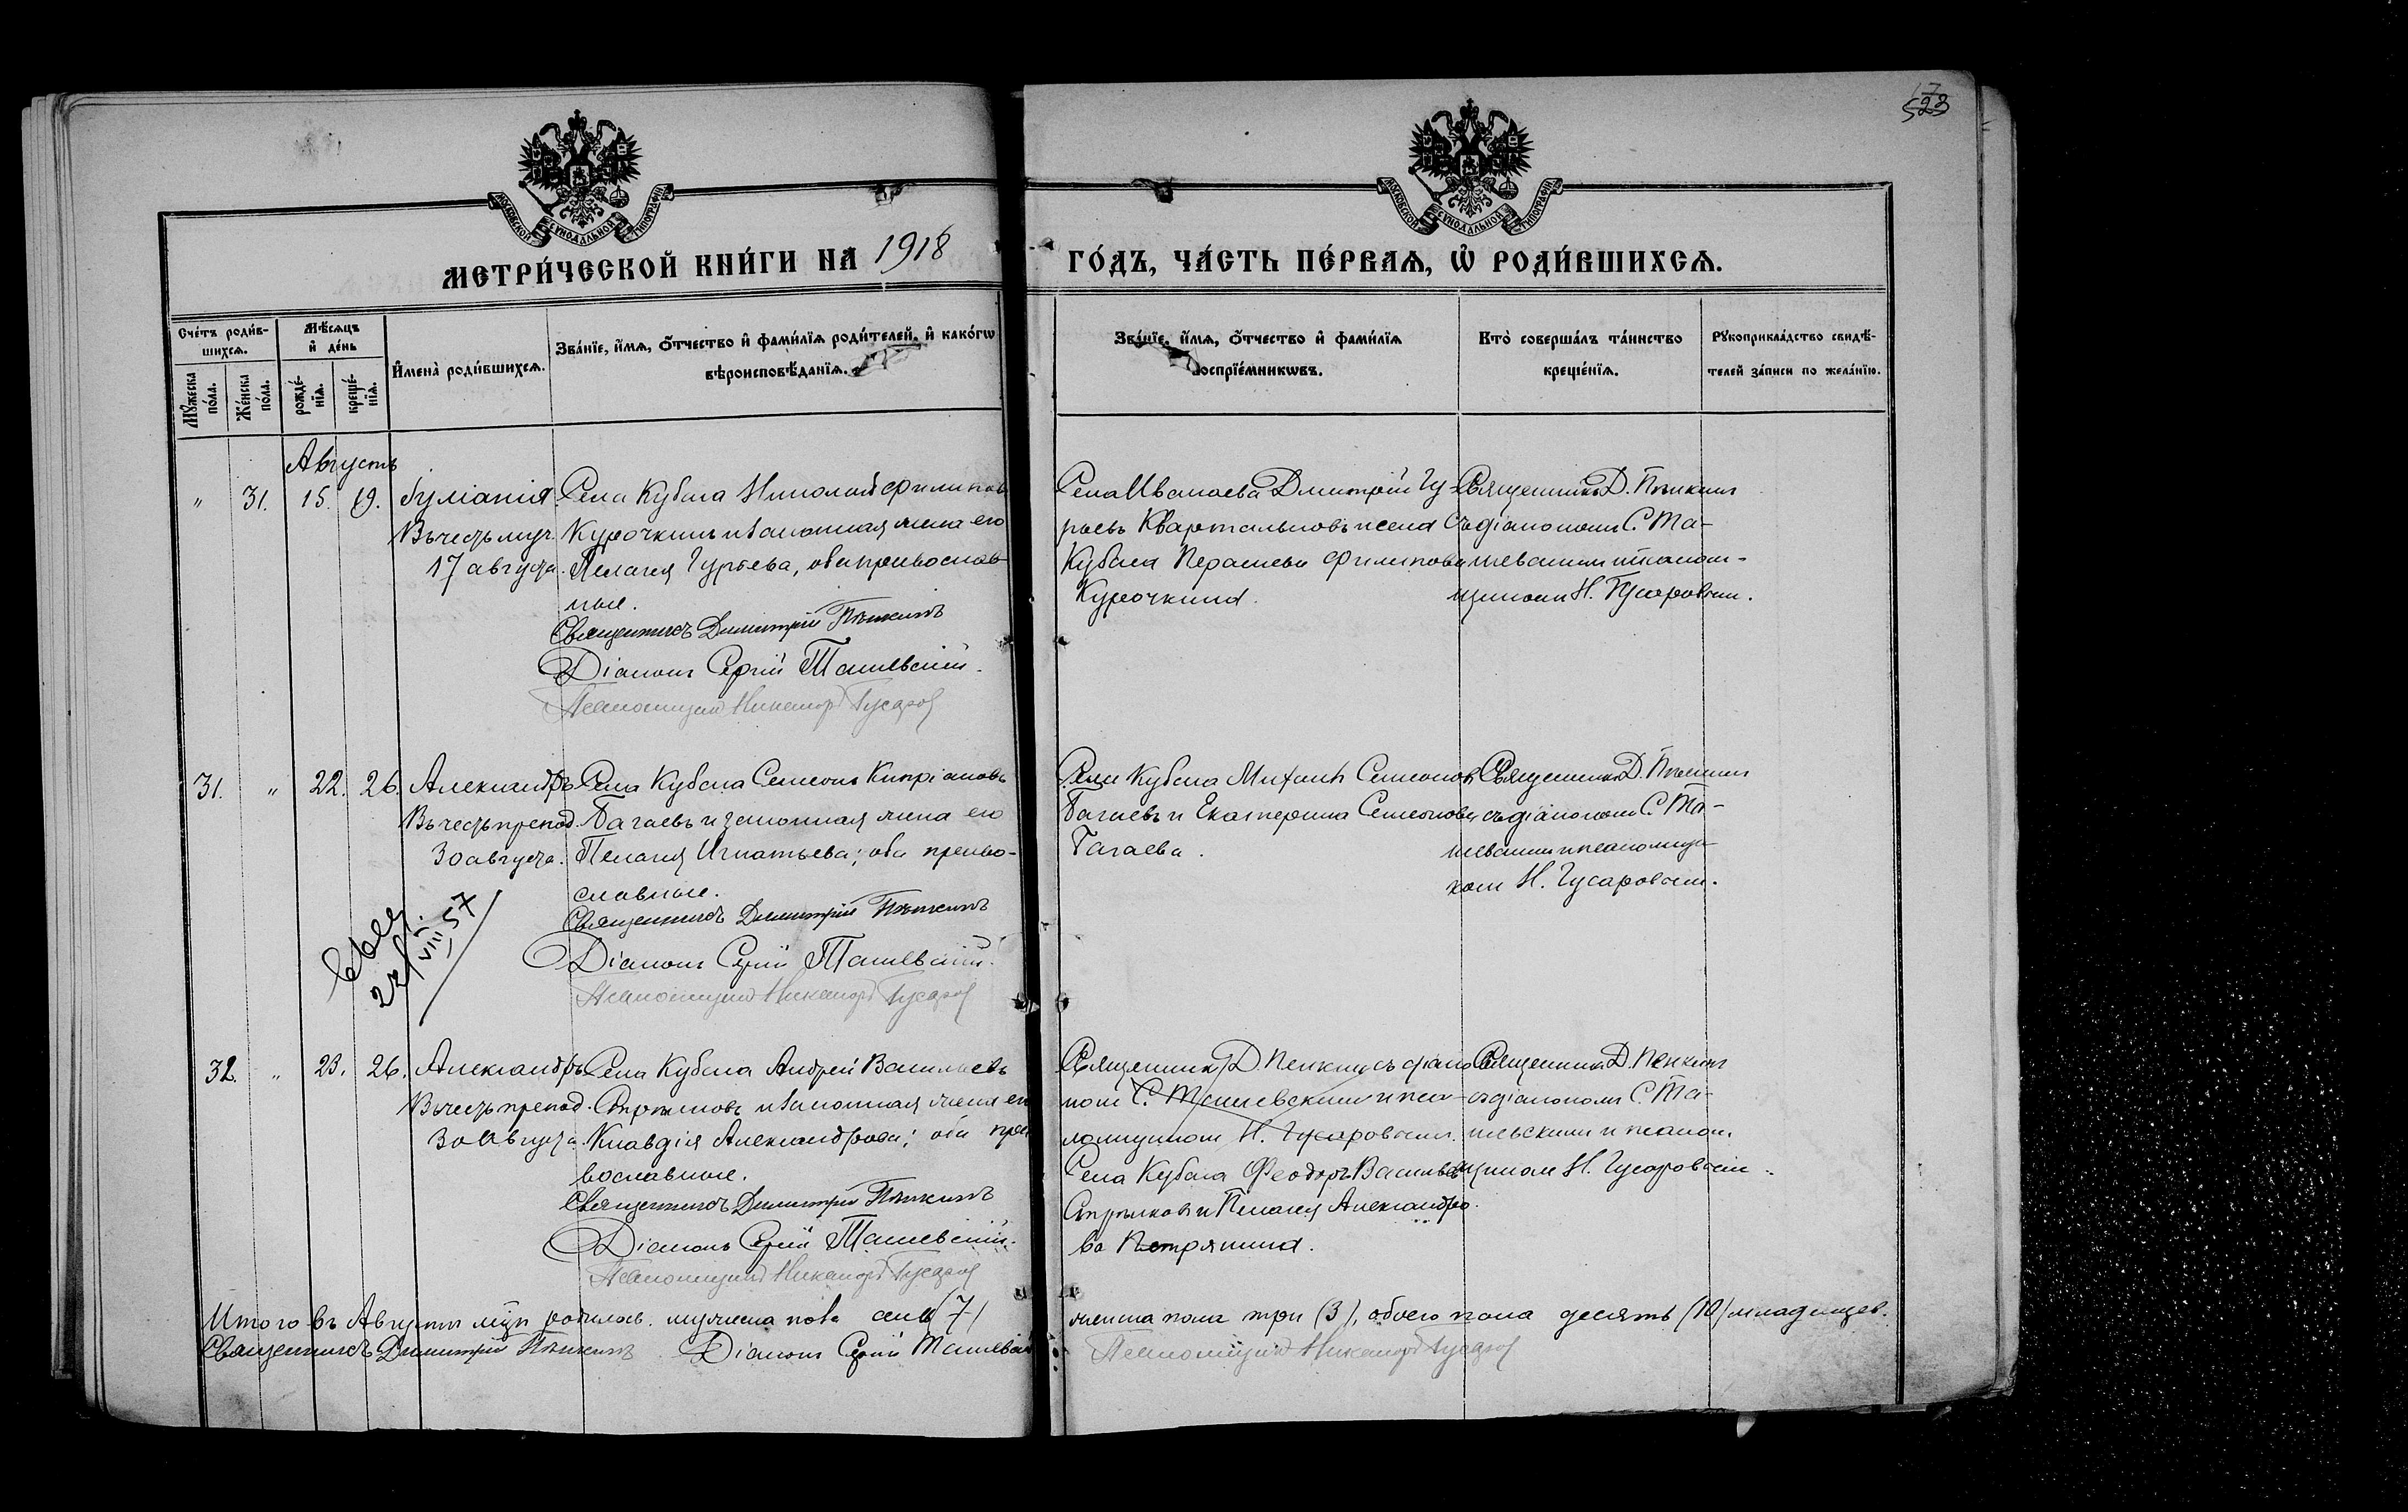 523
МОСКОВСКОЙ СѴНОДАЛЬНОЙ ТИПОГРАФІИ
МОСКОВСКОЙ СѴНОДАЛЬНОЙ ТИПОГРАФІИ
МЕТРИ́ЧЕСКОЙ КНИ́ГИ НА 1918 ГО́ДЪ, ЧА́СТЬ ПЕ́РВАѦ, Ѡ҆ РОДИ́ВШИХСѦ.
Сче́тъ роди́в-
шихсѧ.
Мꙋ́жеска по́ла.
Же́нска по́ла.
Мѣ́сѧцъ и҆ де́нь
рожде́-нїѧ.
креще́-нїѧ.
И҆мена̀ роди́вшихсѧ.
Зва́нїе, и҆́мѧ, ѻ҆́тчество и҆ фами́лїѧ роди́телей, и҆ како́гѡ
вѣроисповѣ́данїѧ.
Зва́нїе, и҆́мѧ, ѻ҆́тчество и҆ фами́лїѧ
воспрїе́мникѡвъ.
Кто̀ соверша́лъ та́инство
креще́нїѧ.
Рꙋкоприкла́дство свидѣ́-
телей за́писи по жела́нїю.
Августъ
" 31. 15. 19. Іуліанія.
Въ честь муч.
17 августа.
Села Кубаса Николай Филипов
Курочкинъ и законная жена его
Пелагея Гурьева, оба православ-
ные.
Священникъ Димитрій Пѣнкинъ
Діаконъ Сергій Ташевскій.
Псаломщикъ Никаноръ Гусаров
Села Иванаева Дмитрій Гу-
рьевъ Квартальновъ и села
Кубаса Параскева Филипова
Курочкина.
Священникъ Д. Пѣнкинъ
съ діакономъ С. Та-
шевскимъ и псалом-
щикомъ Н. Гусаровым.
31. " 22. 26. Александръ
Въ честь препод.
30 августа.
Села Кубаса Семенъ Кипріановъ
Багаевъ и законная жена его
Пелагея Игнатьева; оба право-
славные.
Священникъ Димитрій Пѣнкинъ
Діаконъ Сергій Ташевскій.
Псаломщикъ Никаноръ Гусаров
22/VIII 57
Села Кубаса Михаилъ Семеновъ
Багаевъ и Екатерина Семенова
Багаева.
Священникъ Д. Пѣнкинъ
съ діакономъ С. Та-
шевскимъ и псаломщи-
комъ Н. Гусаровым.
32. " 23. 26. Александръ
Въ честь препод.
30 Августа.
Села Кубаса Андрей Васильевъ
Стрѣлковъ и законная жена его
Клавдія Александрова; оба пра-
вославные.
Священникъ Димитрій Пѣнкинъ
Діаконъ Сергій Ташевскій.
Псаломщикъ Никаноръ Гусаров
Священникъ Д. Пенкинъ съ діако-
ном С. Ташевским и пса-
ломщиком Н. Гусаровым.
Села Кубаса Феодоръ Васильев
Стрѣлковъ и Пелагея Александро-
ва Петряшина.
Священникъ Д. Пенкинъ
съ діакономъ С. Та-
шевскимъ и псалом-
щиком Н. Гусаровым.
Итого въ Августѣ м-цѣ родилось мужеска пола семь (7), женска пола три (3), обоего пола десять (10) младенцев.
Священникъ Димитрій Пѣнкинъ Діаконъ Сергій Ташевскій Псаломщикъ Никаноръ Гусаров